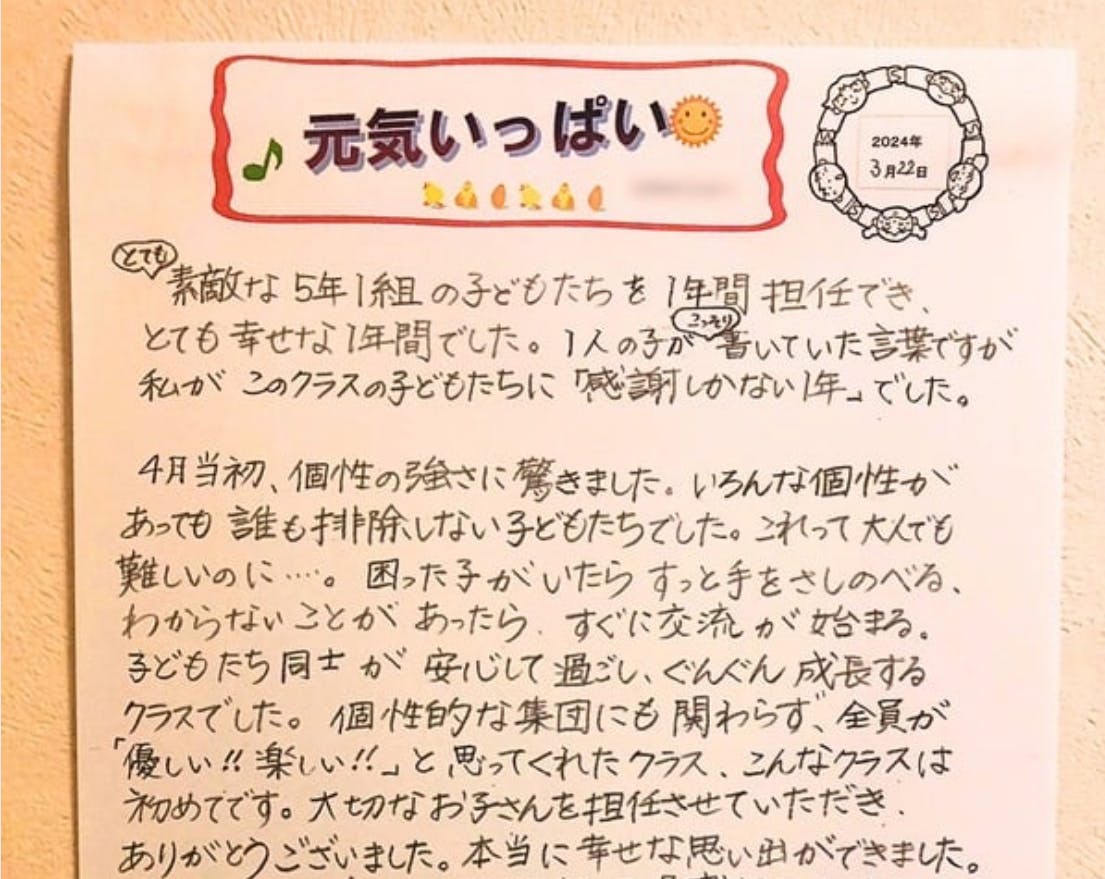 元気いっぱい
2024年
3月22日
とても
素敵な5年1組の子どもたちを1年間担任でき、
こっそり
とても幸せな1年間でした。1人の子が書いていた言葉ですが
私がこのクラスの子どもたちに「感謝しかない1年」でした。
4月当初、個性の強さに驚きました。いろんな個性が
あっても誰も排除しない子どもたちでした。これって大人でも
難しいのに….。困った子がいたらすっと手をさしのべる、
わからないことがあったら、すぐに交流が始まる。
子どもたち同士が安心して過ごし、ぐんぐん成長する
クラスでした。個性的な集団にも関わらず、全員が
「優しい!!楽しい!!」と思ってくれたクラス、こんなクラスは
初めてです。大切なお子さんを担任させていただき、
ありがとうございました。本当に幸せな思い出ができました。